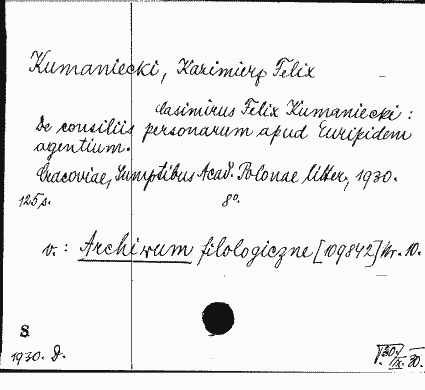 Kumaniecki, Kazimierz Felix
Casimirus Felix Kumaniecki :
De consiliis personarum apud Euripidem
agentium.
Cracoviae, Sumptibus Acad. Polonae litter., 1930.
125 s. 8°.
v. : Archiwum filologiczne [109842] Nr. 10.
S
1930. D.